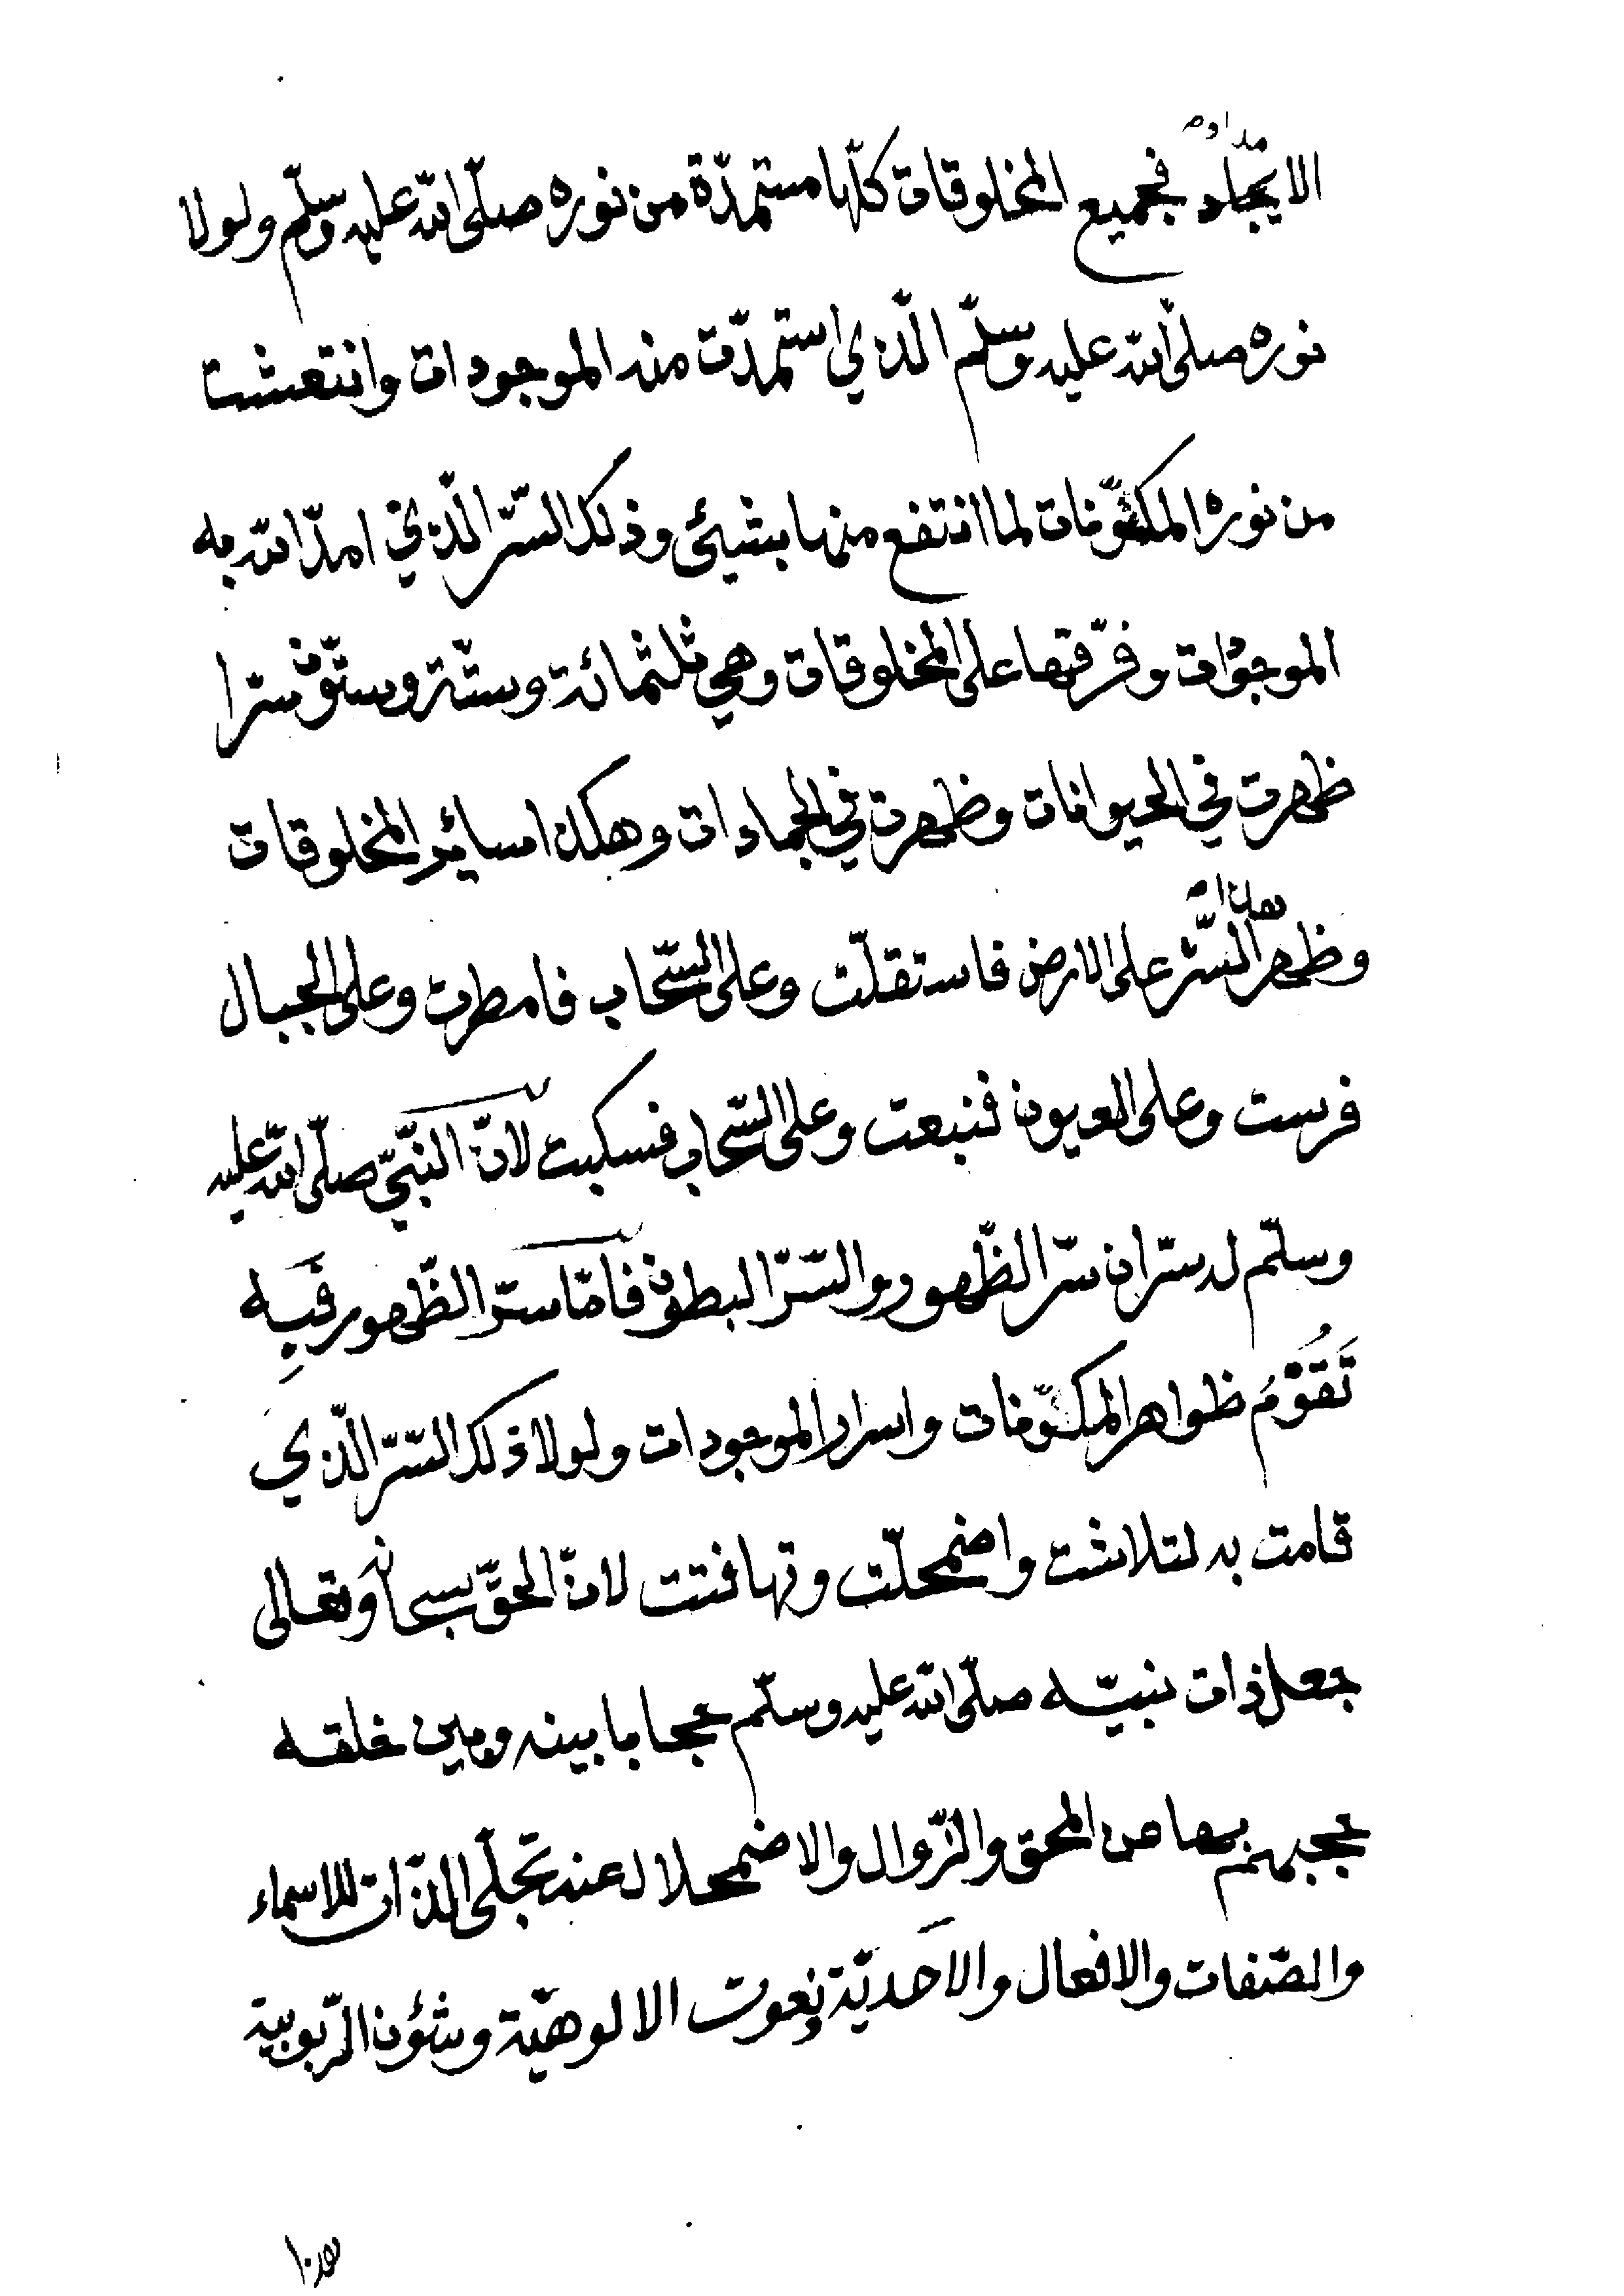 الا بجلده فجميع المخلوقات كلّها مستمدّة من نوره صلّى الله عليه وسلّم ولولا
نوره صلّى الله عليه وسلّم الّذي استمدّت منه الموجودات وانتعشت
من نوره المكوّنات لما انتفع منها بشيئ وذلك السّرّ الّذي امدّ الله به
الموجودات وفرّقها على المخلوقات وهي ثلثمائة وستّة وستّون سرّا
ظهرت في الحيوانات وظهرت في الجمادات وهكذا سائر المخلوقات
وظهر هذا السّرّ على الارض فاستقلّت وعلى السّحاب فامطرت وعلى الجبال
فرست وعلى العيون فنبعت وعلى السّحاب فسكبت لانّ النّبيّ صلّى الله عليه
وسلّم له سرّان سرّ الظّهور والسّرّ البطون فامّا سرّ الظّهور فَبِه
تَقُوْمُ ظواهر المكوّنات واسرار الموجودات ولولا ذلك السّرّ الّذي
قامت به لتلاشت واضمحلّت وتهافتت لانّ الحقّ سبحانه وتعالى
جعل ذات نبيّه صلّى الله عليه وسلّم حجابا بينه وبين خلقه
حجبهم بها من المحق والزّوال والاضمحلال عند تجلّى الذّات للاسماء
والصّفات والافعال والاَحَديّة ونعوت الالوهيّة وشؤن الرّبوبية